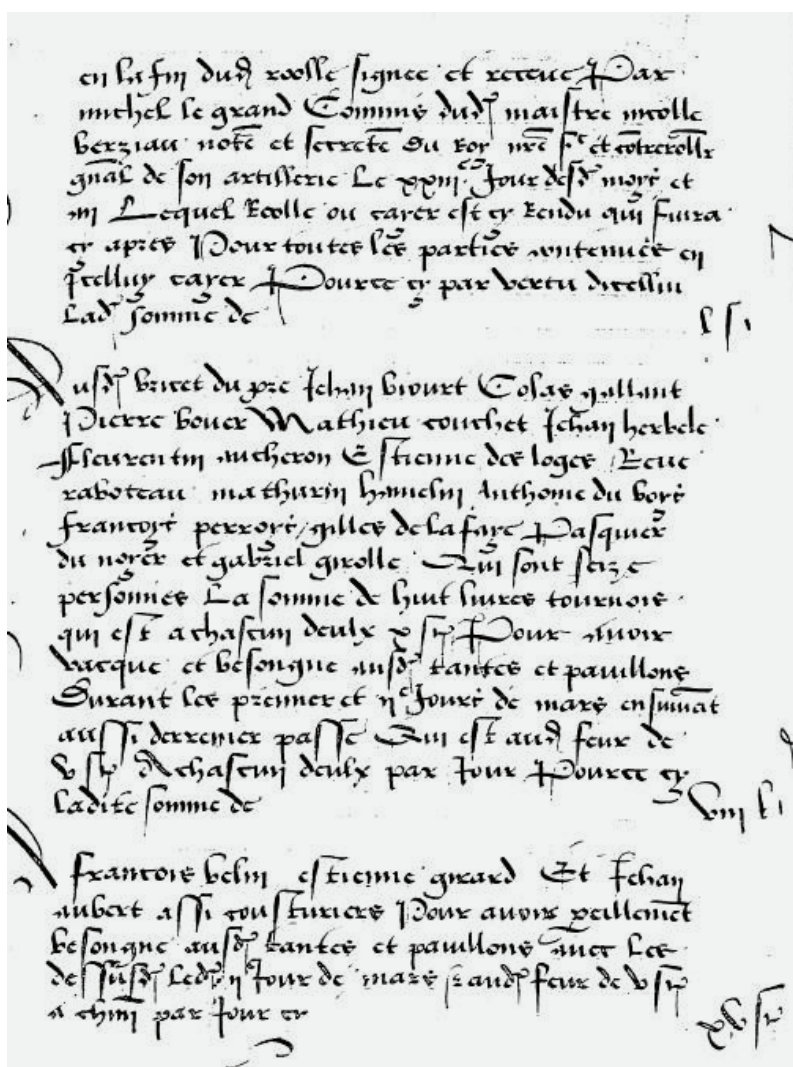 en la fin dud roolle signee et receue Par
michel le grand Commis dud maistre nicolle
berziau not et secret du Roy nre sr et contrerollr
gnal de son artillerie Le xxiiie Jour desd moys et
an Lequel Roolle ou cayer est cy Rendu qui suivra
cy apres Pour toutes les parties contenues en
Icelluy cayer Pource cy par vertu dicelluy
Lad somme de
l s t
Ausd bricet du pre Jehan biourt Colas gallant
Pierre bouer Mathieu couchet Jehan herbele
Fleurentin aucheron Estienne des loges Rene
raboteau mathurin hamelin Anthoine du boys
françoys perroys gilles delafaye Pasquier
du noyer et gabriel girolle Qui sont seize
personnes La somme de huit livres tournois
qui est a chascun deulx x s t Pour avoir
vacque et besongne ausd tantes et pavillons
Durant les premier et iie Jours de mars ensuivat
aussi derrenier passe Qui est aud feur de
v s t A chascun deulx par Jour Pource cy
ladite somme de
viii l t
A francois belin estienne girard Et Jehan
aubert assi cousturiers Pour avoir peillemet
besongne ausd tantes et pavillons avec les
dessusd Led ii Jour de mars aud feur de v s t
a chun par Jour cy
xv s t